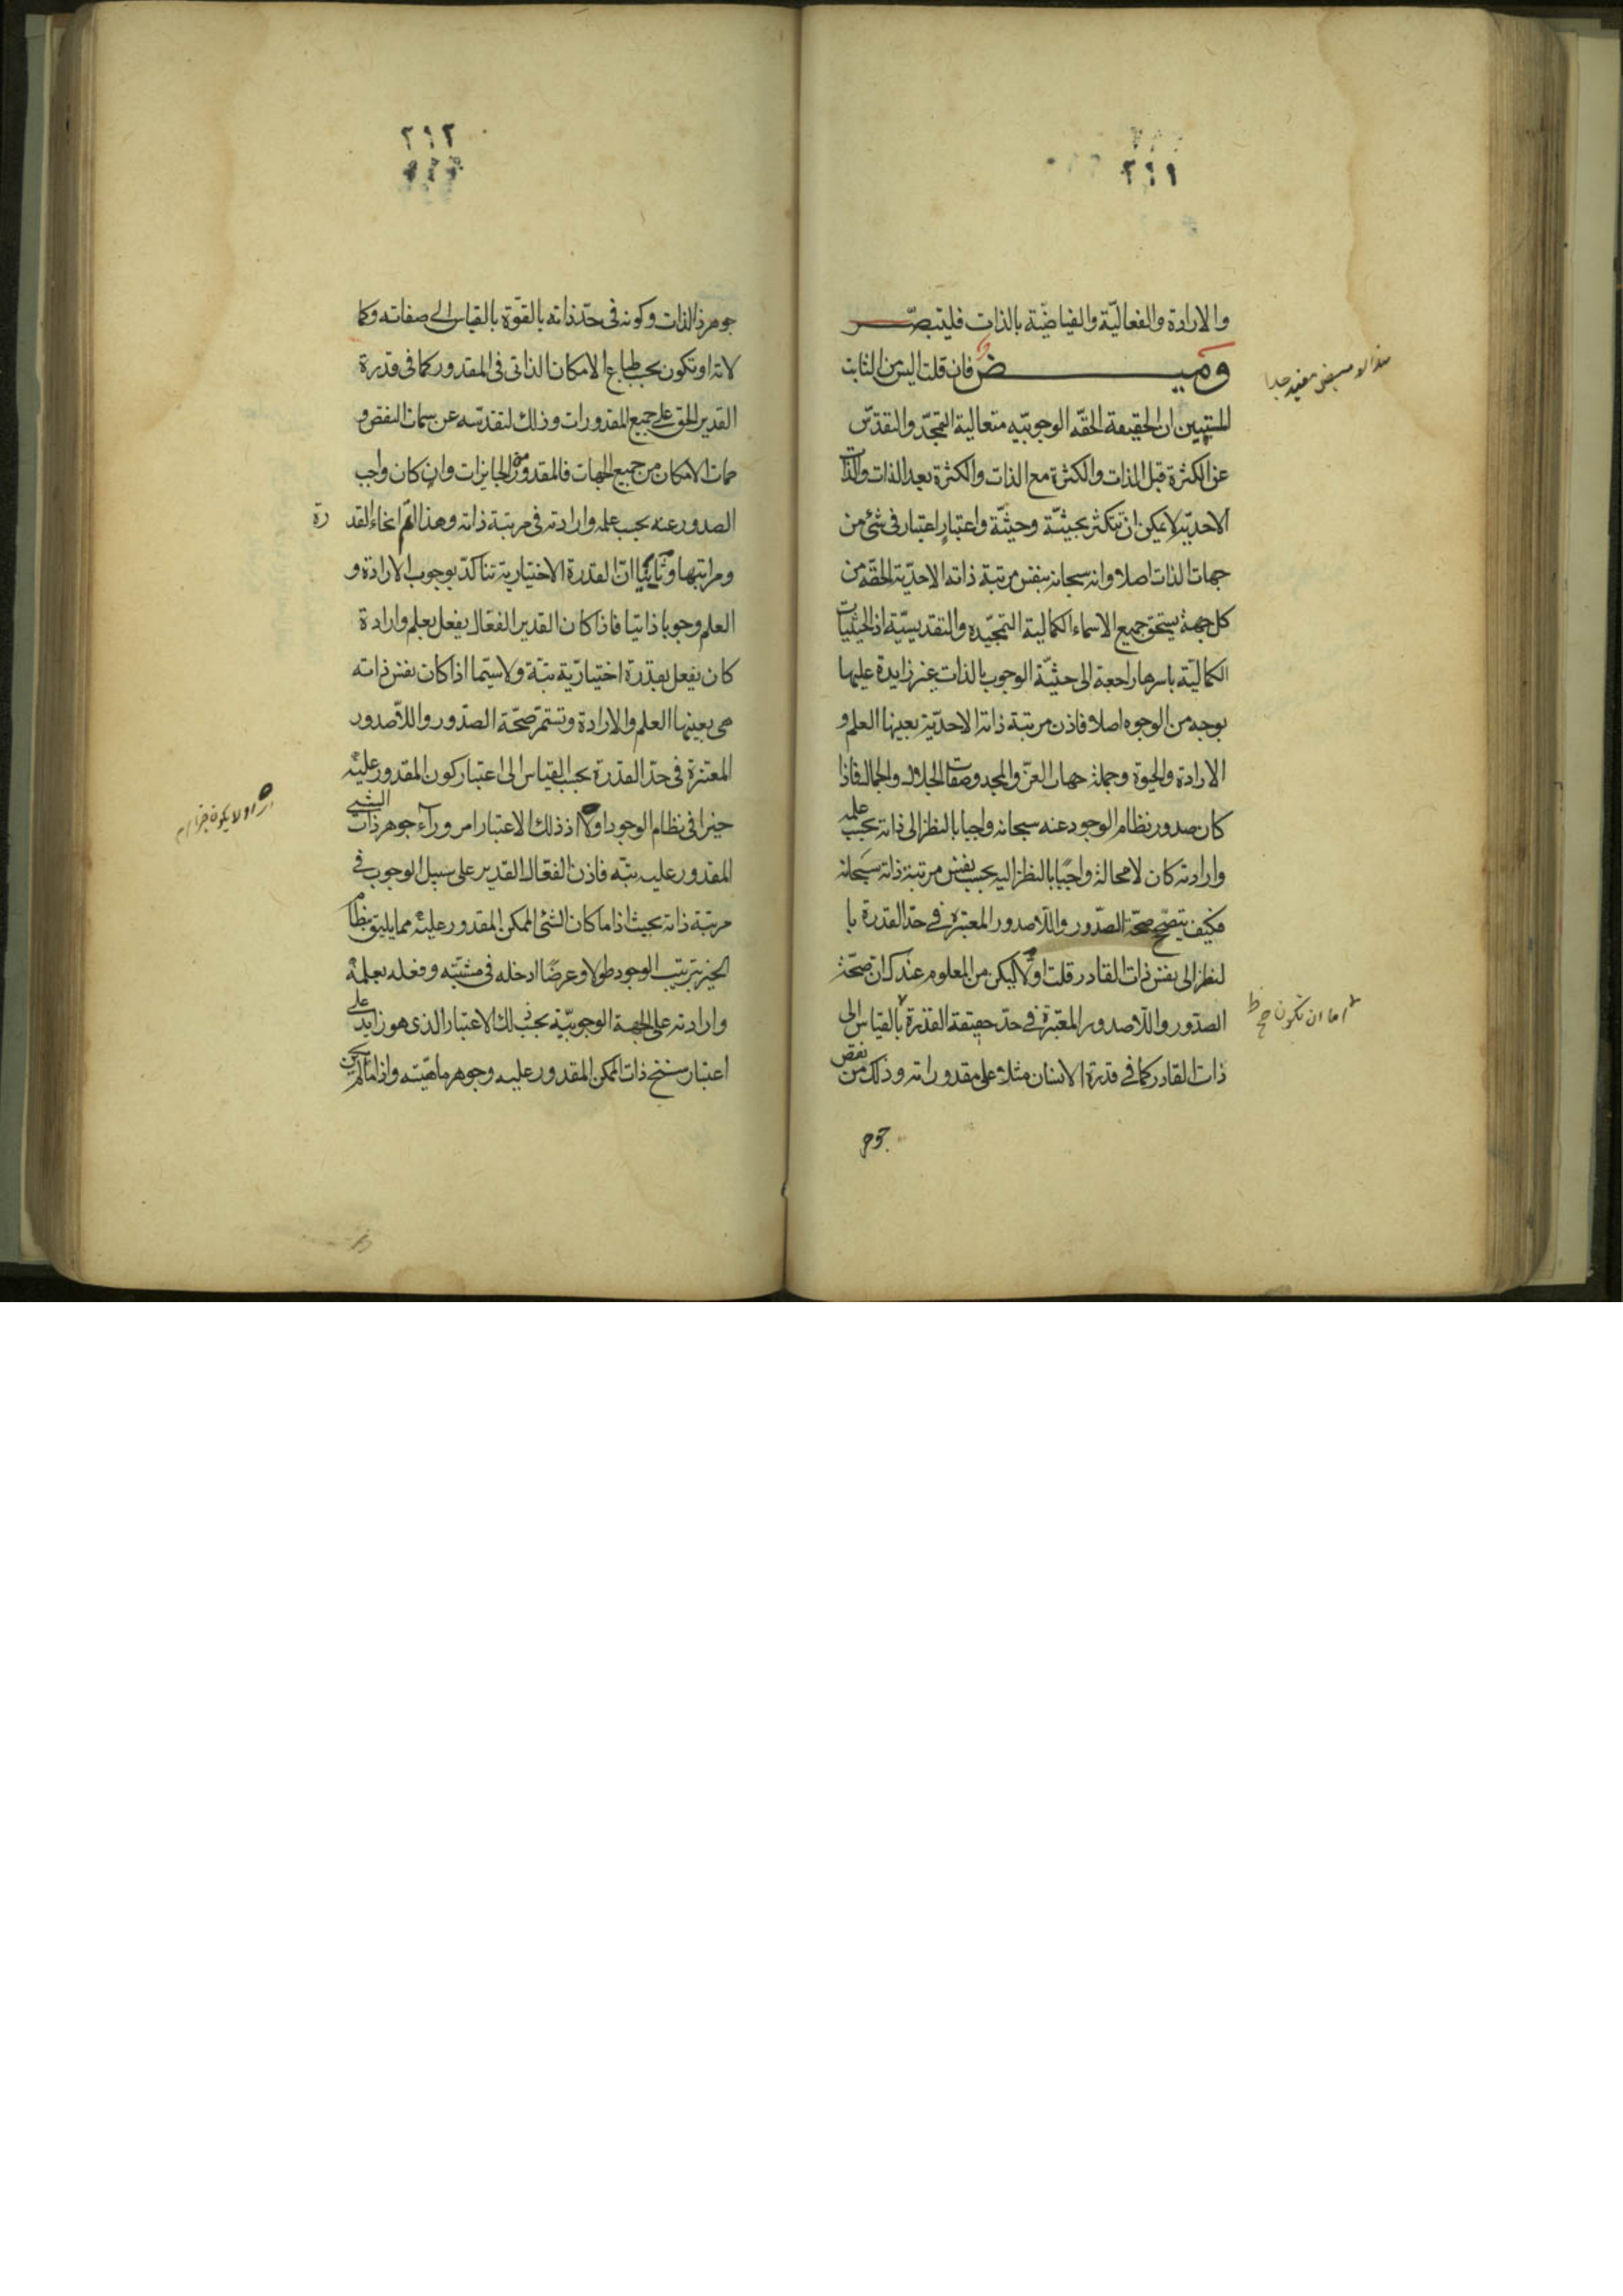 ٢١١
والارادة والفعاليّة والفياضيّة بالذات فليتبصّر
وميض فان قلت اليس من الثابت
المستبين ان الحقيقة الحقّه الوجوبيّه متعالية التمجّد والتقدّس
عن الكثرة قبل الذات والكثرة مع الذات والكثرة بعد الذات والذات
الاحديّه لا يمكن ان تتكثر بحيثيّة وحيثيّة واعتبار اعتبار فى شئ من
جهات الذات اصلا وانه سبحانه بنفس مرتبة ذاته الاحديّة الحقّه من
كل جهة يستحق جميع الاسماء الكمالية التمجيّديه والتقديسيّة اذ الحيثيات
الكماليّة باسرها راجعة الى حيثيّة الوجوب بالذات غير زايدة عليها
بوجه من الوجوه اصلا فاذن مرتبة ذاته الاحديّة بعينها العلم و
الارادة والحيوة وجملة جهات العزّ والمجد وصفات الجلال والجمال فاذا
كان صدور نظام الوجود عنه سبحانه واجبا بالنظر الى ذاته بحسب علمه
وارادته كان لا محالة واجبًا بالنظر اليه بحسب نفس مرتبة ذاته سبحانه
فكيف يتصحّح صحّة الصّدور واللّاصدور المعتبرة فى حدّ القدرة با
لنظر الى نفس ذات القادر قلت اوّلا ليكن من المعلوم عندك ان صحّة
الصدّور واللّاصدور المعتبرة فى حدّ حقيقة القدرة بالقياس الى
ذات القادر كما فى قدرة الانسان مثلا على مقدوراته وذلك من نقص
جوهر
هذا الوميض مفيد جدا
اما ان تكون صح ظ
٢١٢
جوهر الذات وكونه فى حدّ ذاته بالقوّة بالقياس الى صفاته وكما
لاته او تكون بحسب طباع الامكان الذاتى فى المقدور كما فى قدرة
القدير الحق على جميع المقدورات وذلك لتقدّسه عن سمات النقص و
سمات الامكان من جميع الجهات فالمقدور من الجايزات وان كان واجب
الصدور عنه بحسب علمه وارادته فى مرتبة ذاته وهذا اتم انحاء القد رة
ومراتبها وثانيًا انّ القدرة الاختيارية تتاكدّ بوجوب الارادة و
العلم وجوبا ذاتيا فاذا كان القدير الفعّال يفعل بعلم وارادة
كان يفعل بقدرة اختياريّة بتّة ولا سيّما اذا كان نفس ذاته
هى بعينها العلم والارادة وتستمرّ صحّة الصدّور واللاّصدور
المعتبرة فى حدّ القدرة بحسب القياس الى اعتبار كون المقدور عليه
خيرا فى نظام الوجود اولا اذ ذلك الاعتبار امر ورآء جوهر ذات الشئ
المقدور عليه بتّه فاذن الفعّال القدير على سبيل الوجوب فى
مرتبة ذاته بحيث اذا ما كان الشئ الممكن المقدور عليه مما يليق بنظام
الخير بترتيب الوجود طولا وعرضًا ادخله فى مشيّته وفعله بعلمه
وارادته على الجهة الوجوبيّة بحسب ذلك الاعتبار الذى هو زايد على
اعتبار سنخ ذات الممكن المقدور عليه وجوهر ماهيّته واذا ما لم يكن
او لا يكون خيرا